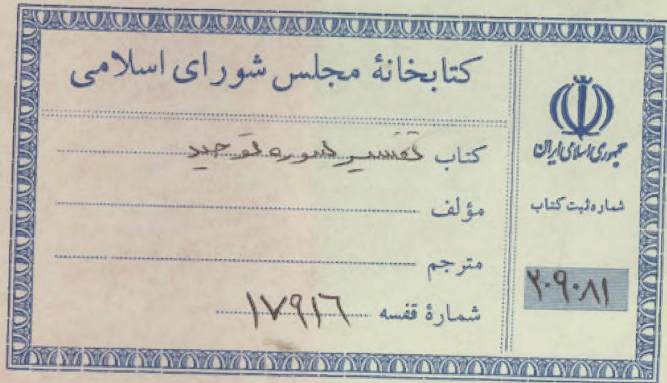 کتابخانهٔ مجلس شورای اسلامی
کتاب تفسیر سوره توحید
مؤلف
مترجم
شمارهٔ قفسه ۱۷۹۱۶
جمهوری اسلامی ایران
شماره ثبت کتاب
۲۰۹۰۸۱